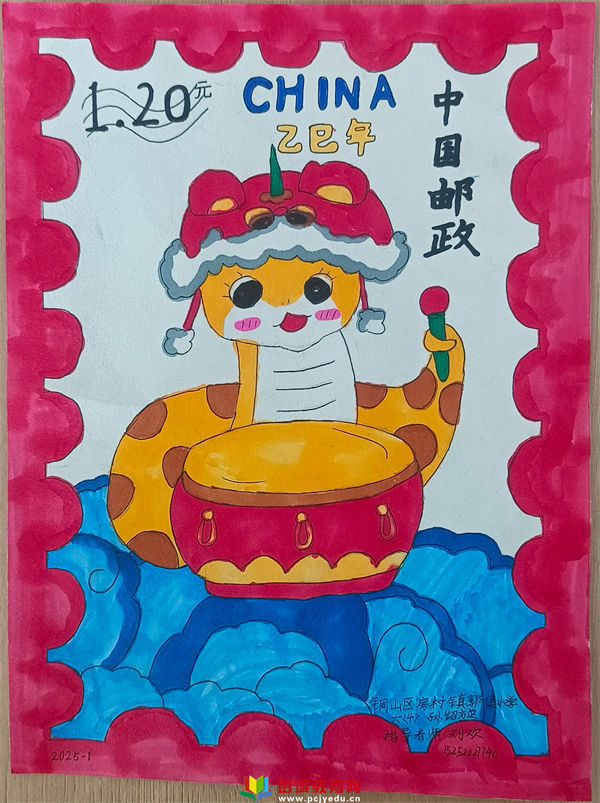 1.20元
CHINA
乙巳年
中国邮政
铜山区房村镇郭集小学
六(4)
指导老师 刘欢
2025-1
www.pcjyedu.cn